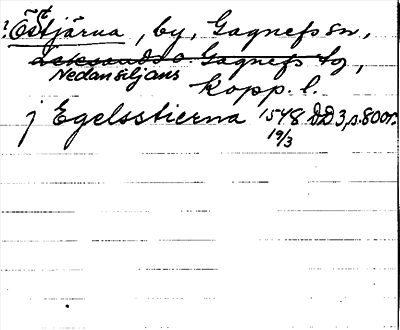 ? Östjärna, by, Gagnefs sn,
Leksands o. Gagnefs tg,
Nedansiljans
Kopp. l.
j Egelsstierna 1548 DD3, s. 80 or.
19/3